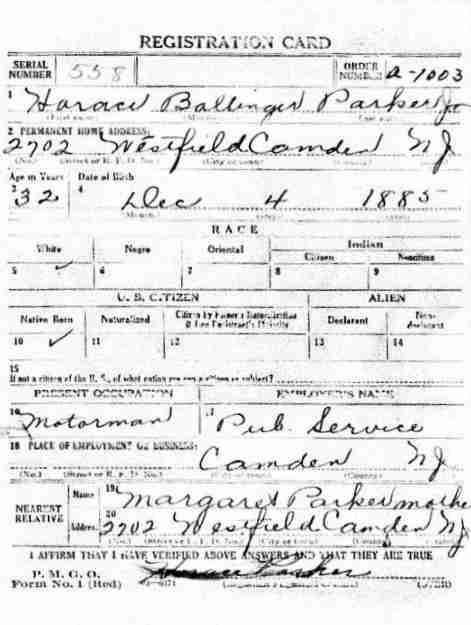 REGISTRATION CARD
SERIAL NUMBER 558 ORDER NUMBER a-1003
1 Horace Ballinger Parker Jr
2 PERMANENT HOME ADDRESS:
2702 Westfield Camden NJ
(No.) (Street or R. F. D. No.) (City or town) (County)
Age in Years Date of Birth
3 32 4 Dec 4 1885
(Month)
RACE
White Negro Oriental Indian
Citizen Noncitizen
5 ✓ 6 7 8 9
U. S. CITIZEN ALIEN
Native Born Naturalized Citizen by Father's Naturalization Before Registrant's Majority Declarant Non-declarant
10 ✓ 11 12 13 14
15
If not a citizen of the U. S., of what nation are you a citizen or subject?
PRESENT OCCUPATION EMPLOYER'S NAME
16 Motorman 17 Pub. Service
18 PLACE OF EMPLOYMENT OR BUSINESS:
Camden NJ
(No.) (Street or R. F. D. No.) (City or town) (County)
NEAREST RELATIVE Name 19 Margaret Parker mothe
Address 20 2702 Westfield Camden NJ
(No.) (City or town)
I AFFIRM THAT I HAVE VERIFIED ABOVE ANSWERS AND THAT THEY ARE TRUE
P. M. G. O.
Form No. 1 (Red) Horace Parker